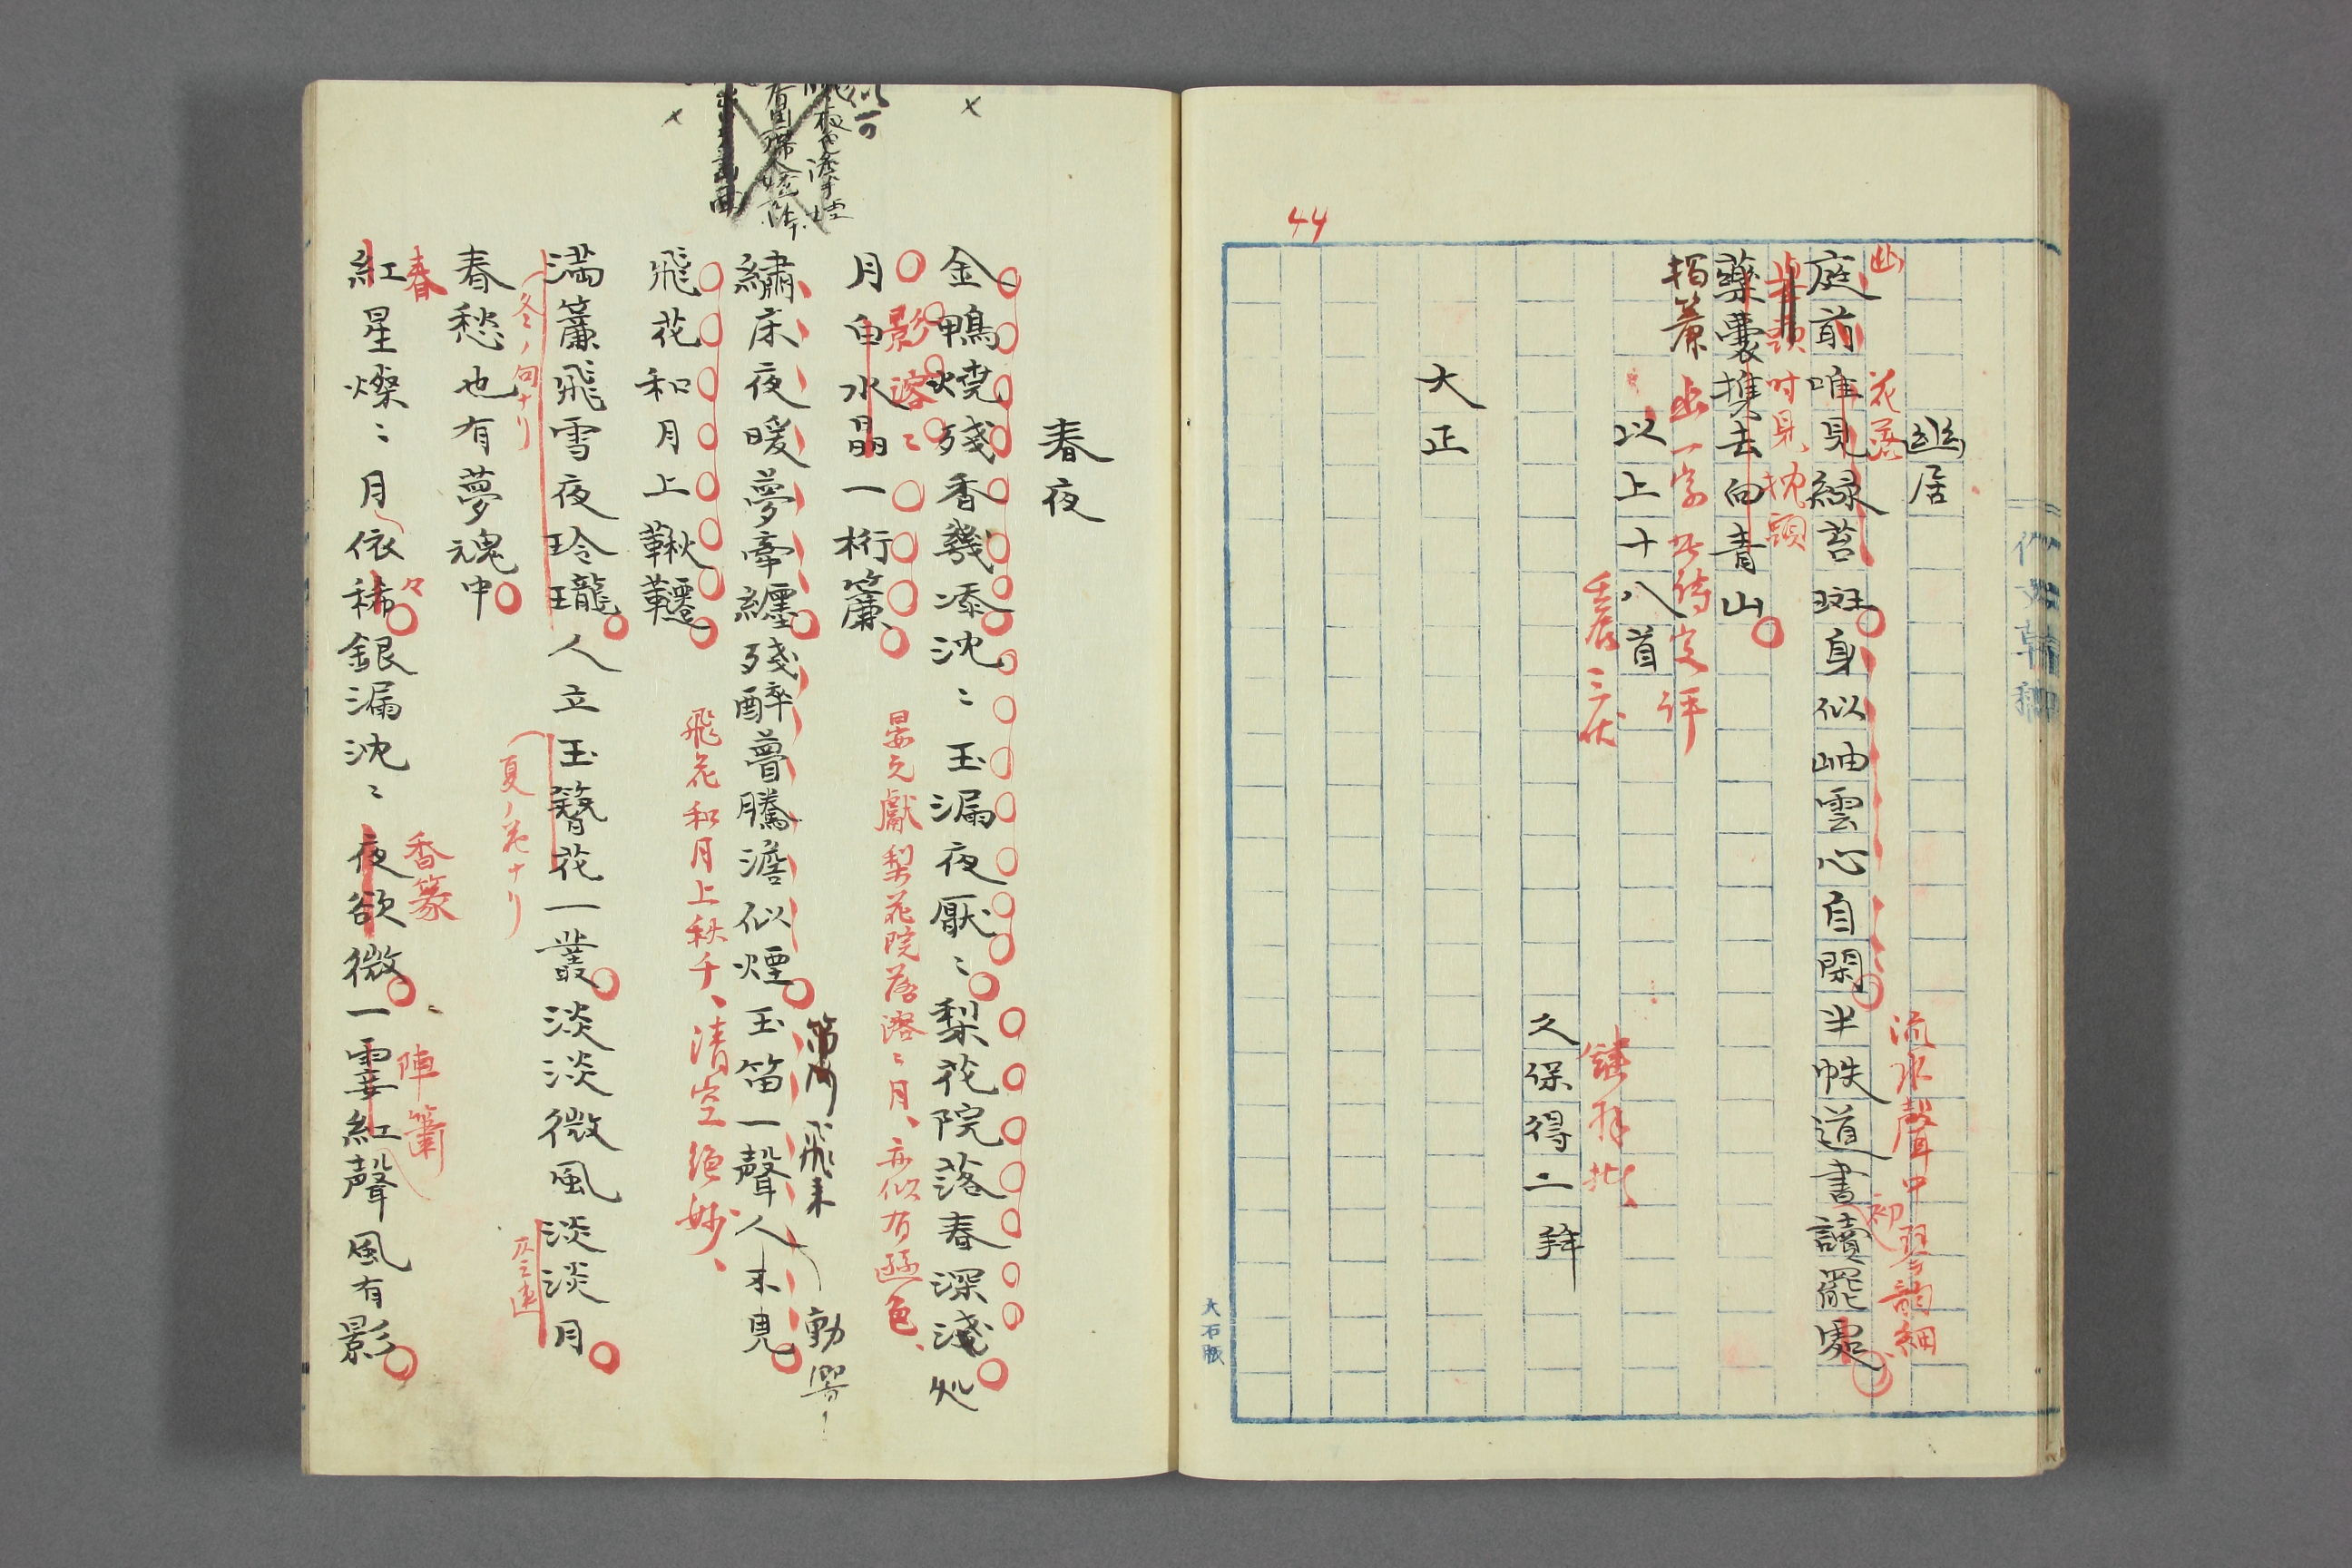 44
幽居
花落
流水聲中琴韵細
初
庭前唯見緑苔斑身似岫雲心自閑半帙道書讀罷處
時見枕頭
藥囊携去向青山
拐簾
一字
待定評
以上十八首
壬辰三伏
拜批
久保得二拜
大正
大石版
春夜
金鴨燒殘香幾添沈〻玉漏夜厭〻梨花院落春深淺処
影溶〻
月白水晶一桁簾
晏元獻梨花院落溶〻月、亦似有遜色、
飛来
動響
繡床夜暖夢牽纏殘醉瞢騰澹似煙玉笛一聲人不見
飛花和月上鞦韆
飛花和月上秋千、清空絶妙、
満簾飛雪夜玲瓏人立玉簪花一叢淡淡微風淡淡月
冬ノ句ナリ
夏ノ花ナリ
春愁也有夢魂中
春
々
香篆
陣簫
紅星燦〻月依稀銀漏沈〻夜欲微一霎紅聲風有影